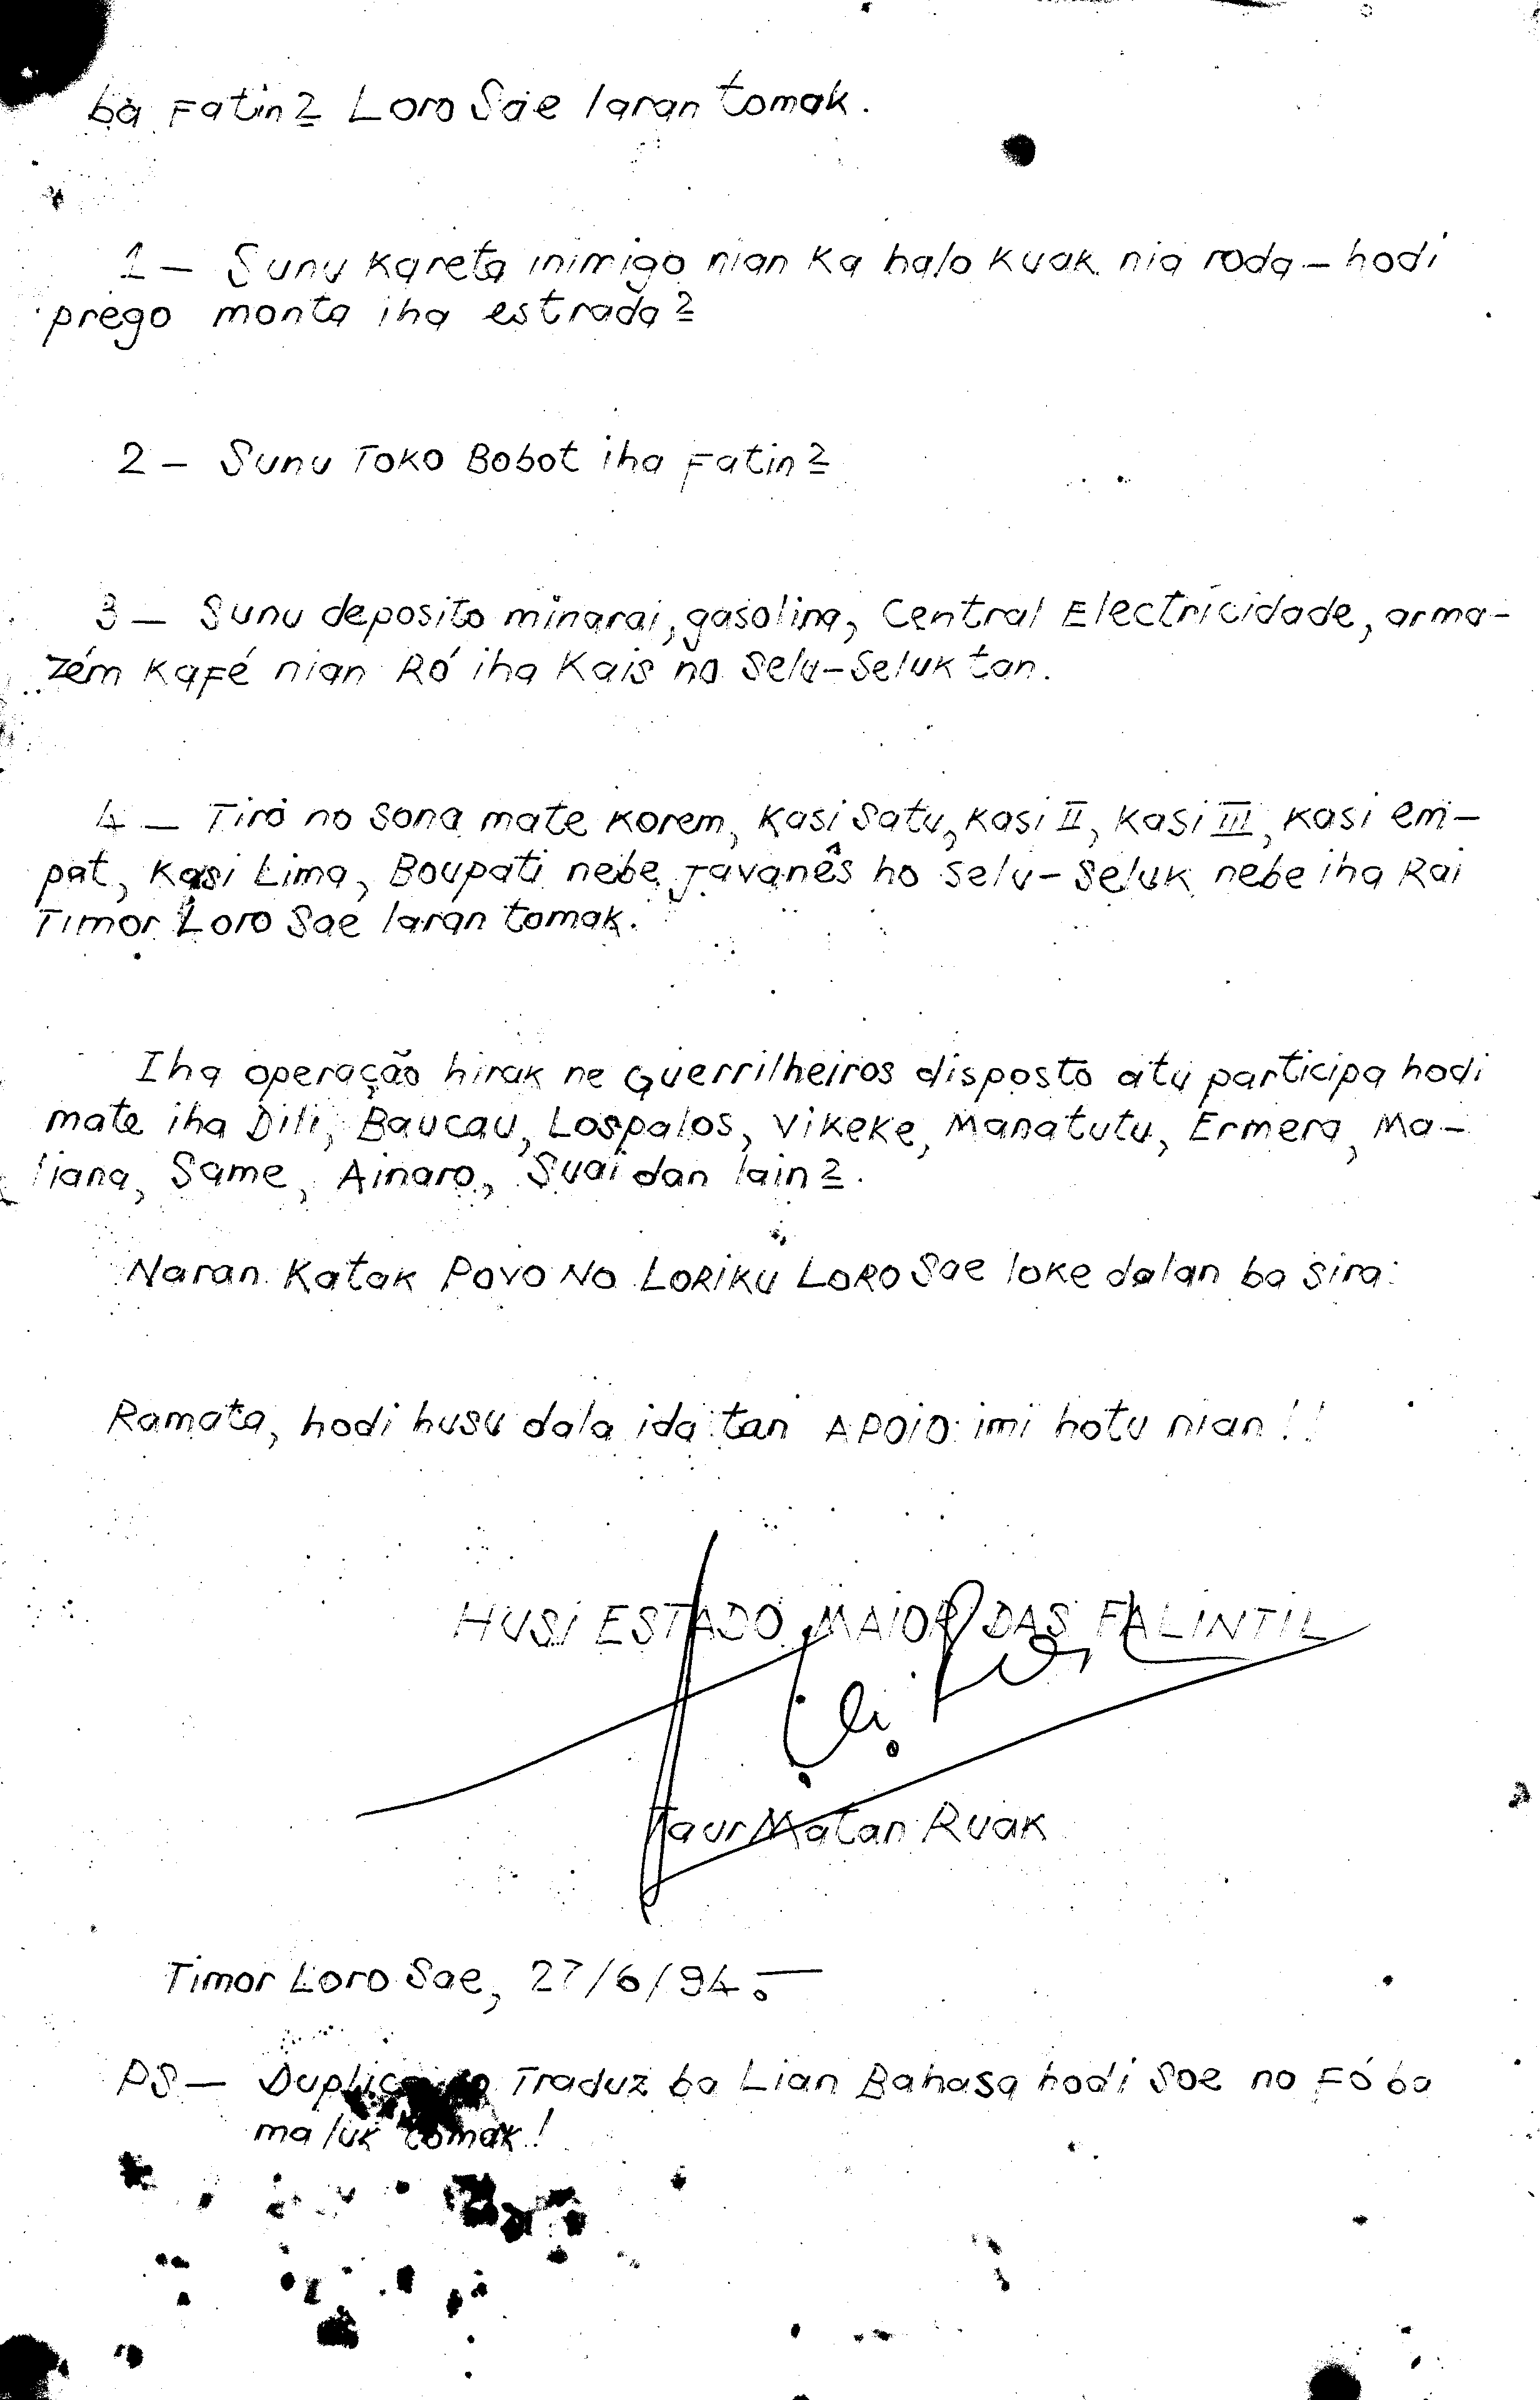 ba Fatin2 Loro Sae laran tomak.
1 — Sunu Kareta inimigo nian Ka halo Kuak nia roda — hodi
prego monta iha estrada2
2 — Sunu Toko Bobot iha Fatin2
3 — Sunu deposito minarai, gasolina, Central Electricidade, arma-
zém Kafé nian Ró iha Kais no Selu-Seluk tan.
4 — Tiro no sona mate Korem, Kasi Satu, Kasi II, Kasi III, Kasi em-
pat, Kasi Lima, Boupati nebe Javanês ho selu-seluk nebe iha Rai
Timor Loro Sae laran tomak.
Iha operação hirak ne Guerrilheiros disposto atu participa hodi
mate iha Dili, Baucau, Lospalos, Vikeke, Manatutu, Ermera, Ma-
liana, Same, Ainaro, Suai dan lain2.
Naran Katak Povo No LORIKU LORO Sae loke dalan ba sira.
Ramata, hodi husu dala ida tan APOIO imi hotu nian!!
HUSI ESTADO MAIOR DAS FALINTIL
Taur Matan Ruak
Timor Loro Sae, 27/6/94.—
PS — Traduz ba Lian Bahasa hodi Soe no Fó ba
maluk tomak!